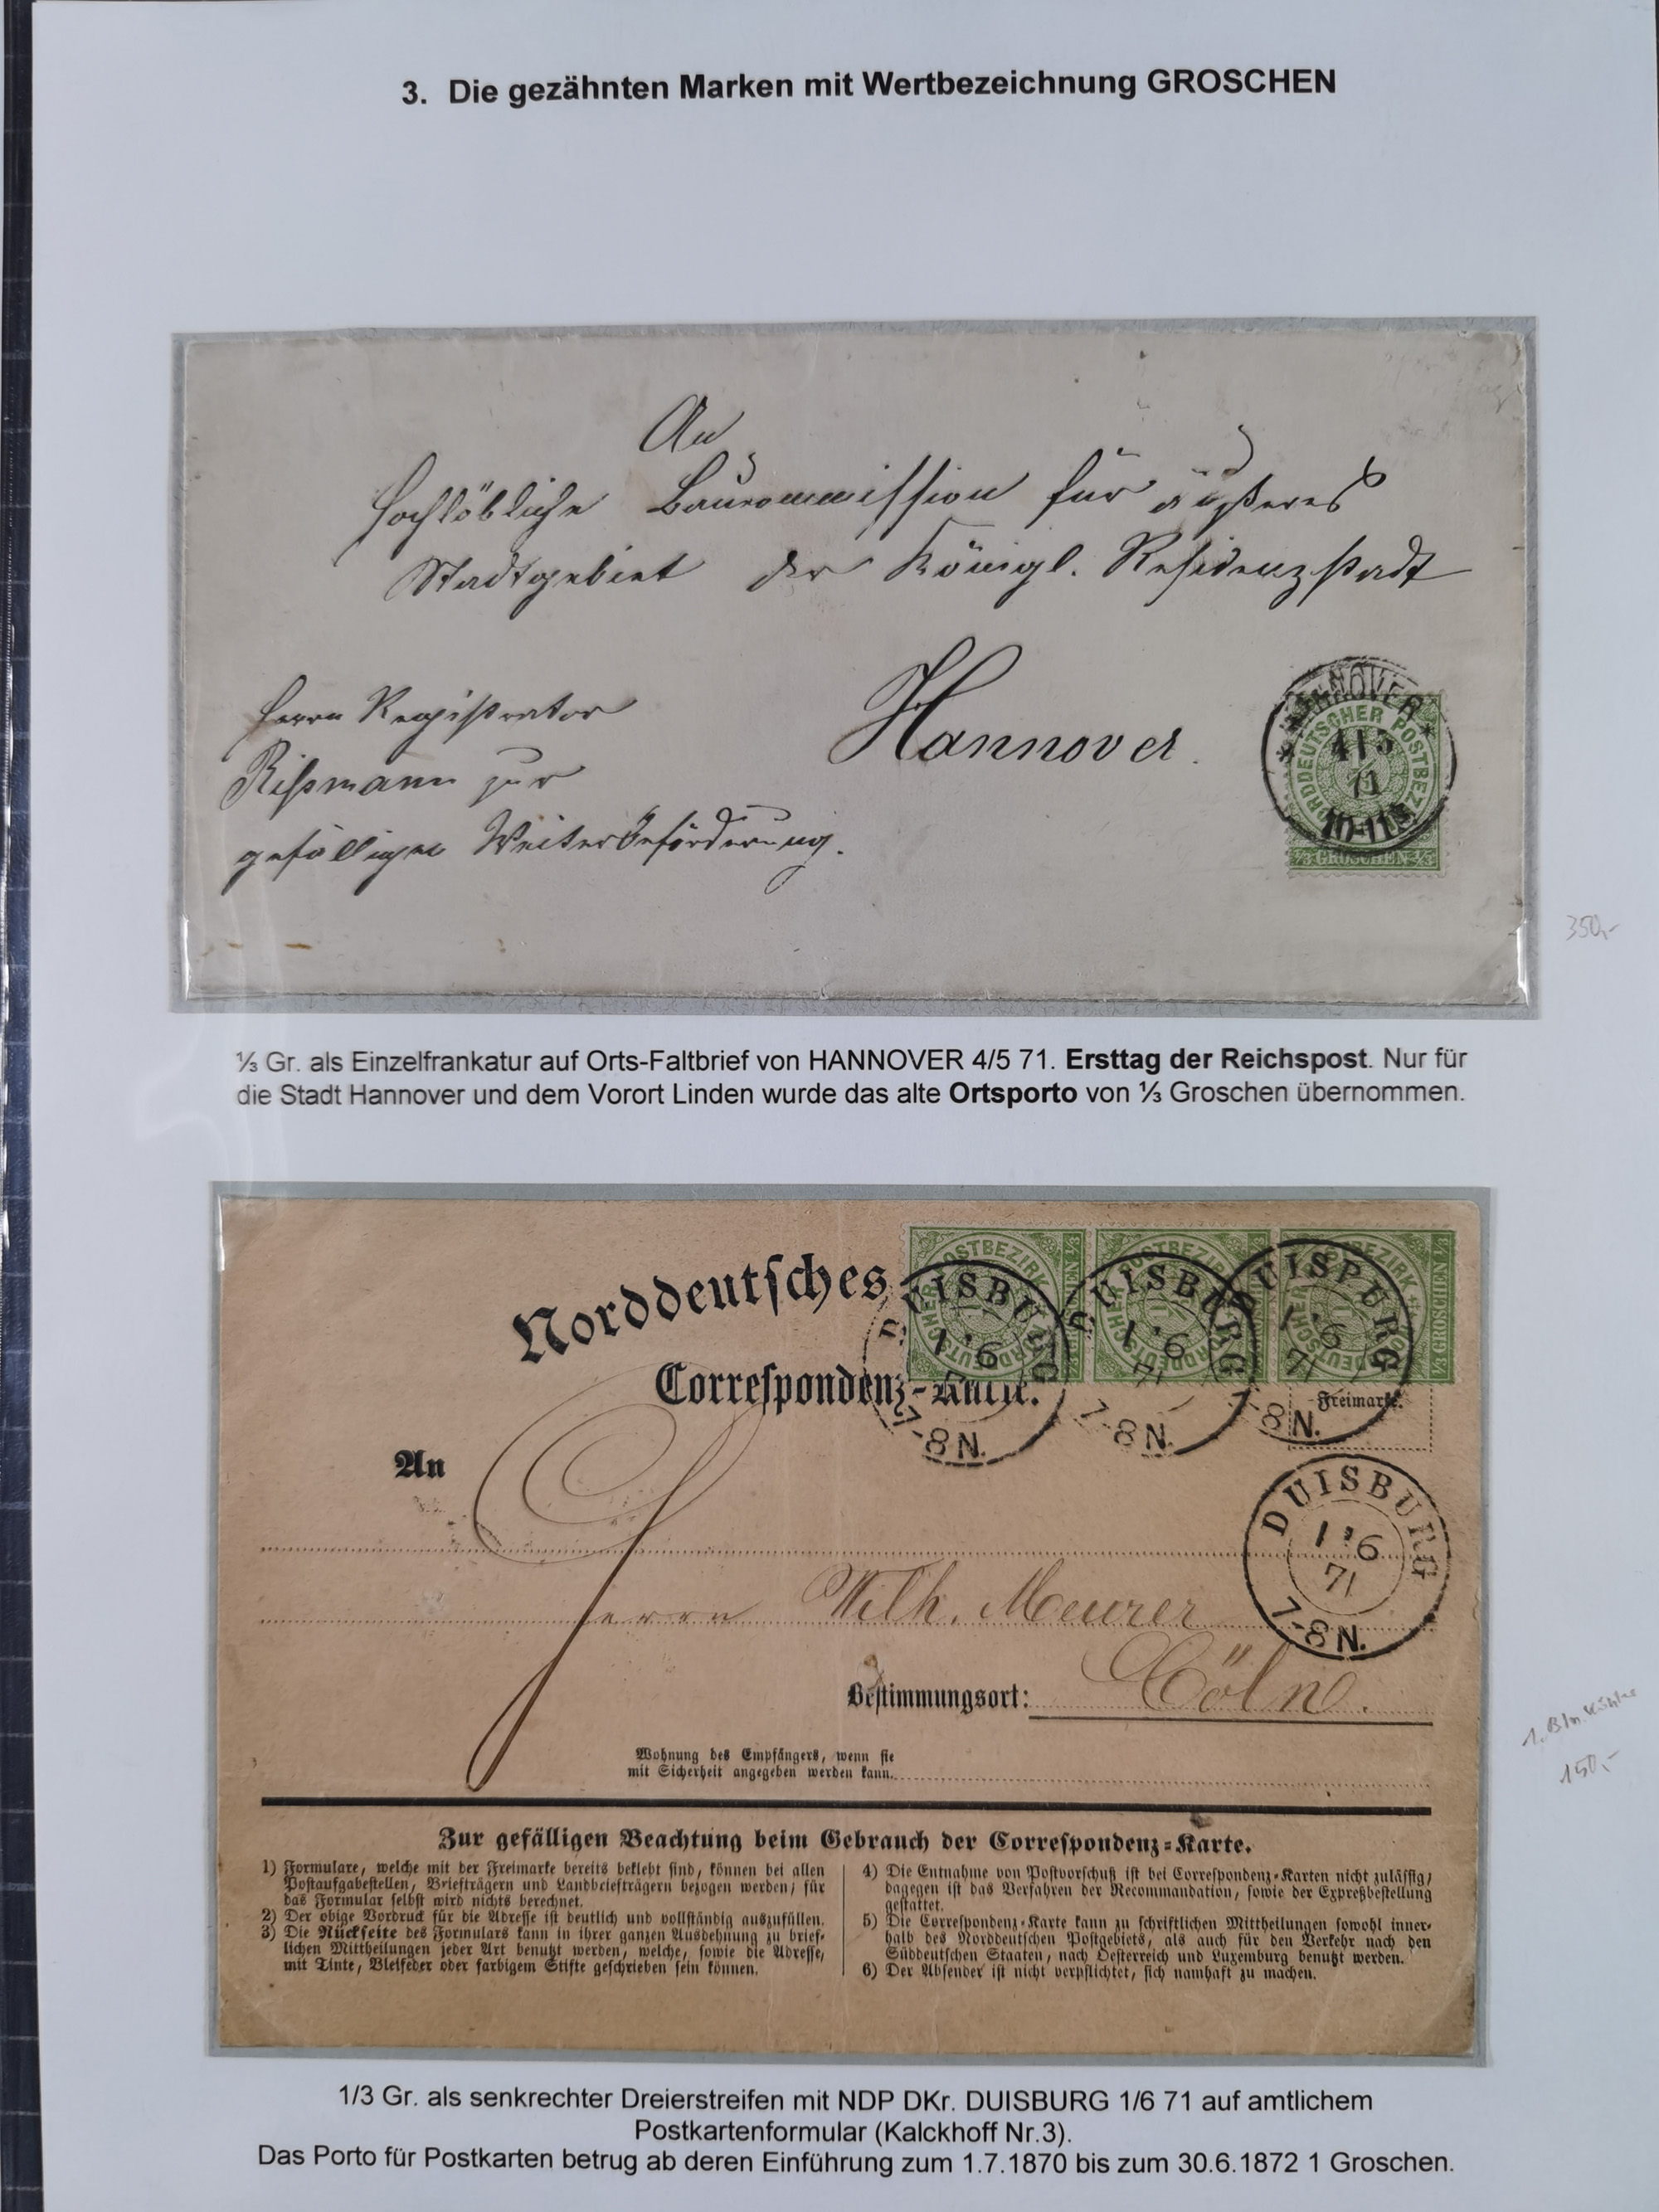 3. Die gezähnten Marken mit Wertbezeichnung GROSCHEN
An
Hochlöbliche Baucommission für äußeres
Stadtgebiet der Königl. Residenzstadt
Hannover.
Herrn Registrator
Rißmann zur
gefälligen Weiterbeförderung.
HANNOVER
4/5
71
10-11
NORDDEUTSCHER POSTBEZIRK
1/3 GROSCHEN 1/3
350,-
⅓ Gr. als Einzelfrankatur auf Orts-Faltbrief von HANNOVER 4/5 71. Ersttag der Reichspost. Nur für
die Stadt Hannover und dem Vorort Linden wurde das alte Ortsporto von ⅓ Groschen übernommen.
Norddeutsches
Correspondenz-Karte.
DUISBURG
1 6
7-8 N.
DUISBURG
1 6
71
7-8 N.
DUISBURG
1 6
71
7-8 N.
1/3 GROSCHEN 1/3
Freimarke.
An
DUISBURG
1 6
71
7-8 N.
Herrn Wilh. Meurer
Bestimmungsort: Cöln.
Wohnung des Empfängers, wenn sie
mit Sicherheit angegeben werden kann.
150,-
Zur gefälligen Beachtung beim Gebrauch der Correspondenz-Karte.
1) Formulare, welche mit der Freimarke bereits beklebt sind, können bei allen
Postaufgabestellen, Briefträgern und Landbriefträgern bezogen werden; für
das Formular selbst wird nichts berechnet.
2) Der obige Vordruck für die Adresse ist deutlich und vollständig auszufüllen.
3) Die Rückseite des Formulars kann in ihrer ganzen Ausdehnung zu brief-
lichen Mittheilungen jeder Art benutzt werden, welche, sowie die Adresse,
mit Tinte, Bleifeder oder farbigem Stifte geschrieben sein können.
4) Die Entnahme von Postvorschuß ist bei Correspondenz-Karten nicht zulässig;
dagegen ist das Verfahren der Recommandation, sowie der Expreßbestellung
gestattet.
5) Die Correspondenz-Karte kann zu schriftlichen Mittheilungen sowohl inner-
halb des Norddeutschen Postgebiets, als auch für den Verkehr nach den
Süddeutschen Staaten, nach Oesterreich und Luxemburg benutzt werden.
6) Der Absender ist nicht verpflichtet, sich namhaft zu machen.
1/3 Gr. als senkrechter Dreierstreifen mit NDP DKr. DUISBURG 1/6 71 auf amtlichem
Postkartenformular (Kalckhoff Nr.3).
Das Porto für Postkarten betrug ab deren Einführung zum 1.7.1870 bis zum 30.6.1872 1 Groschen.